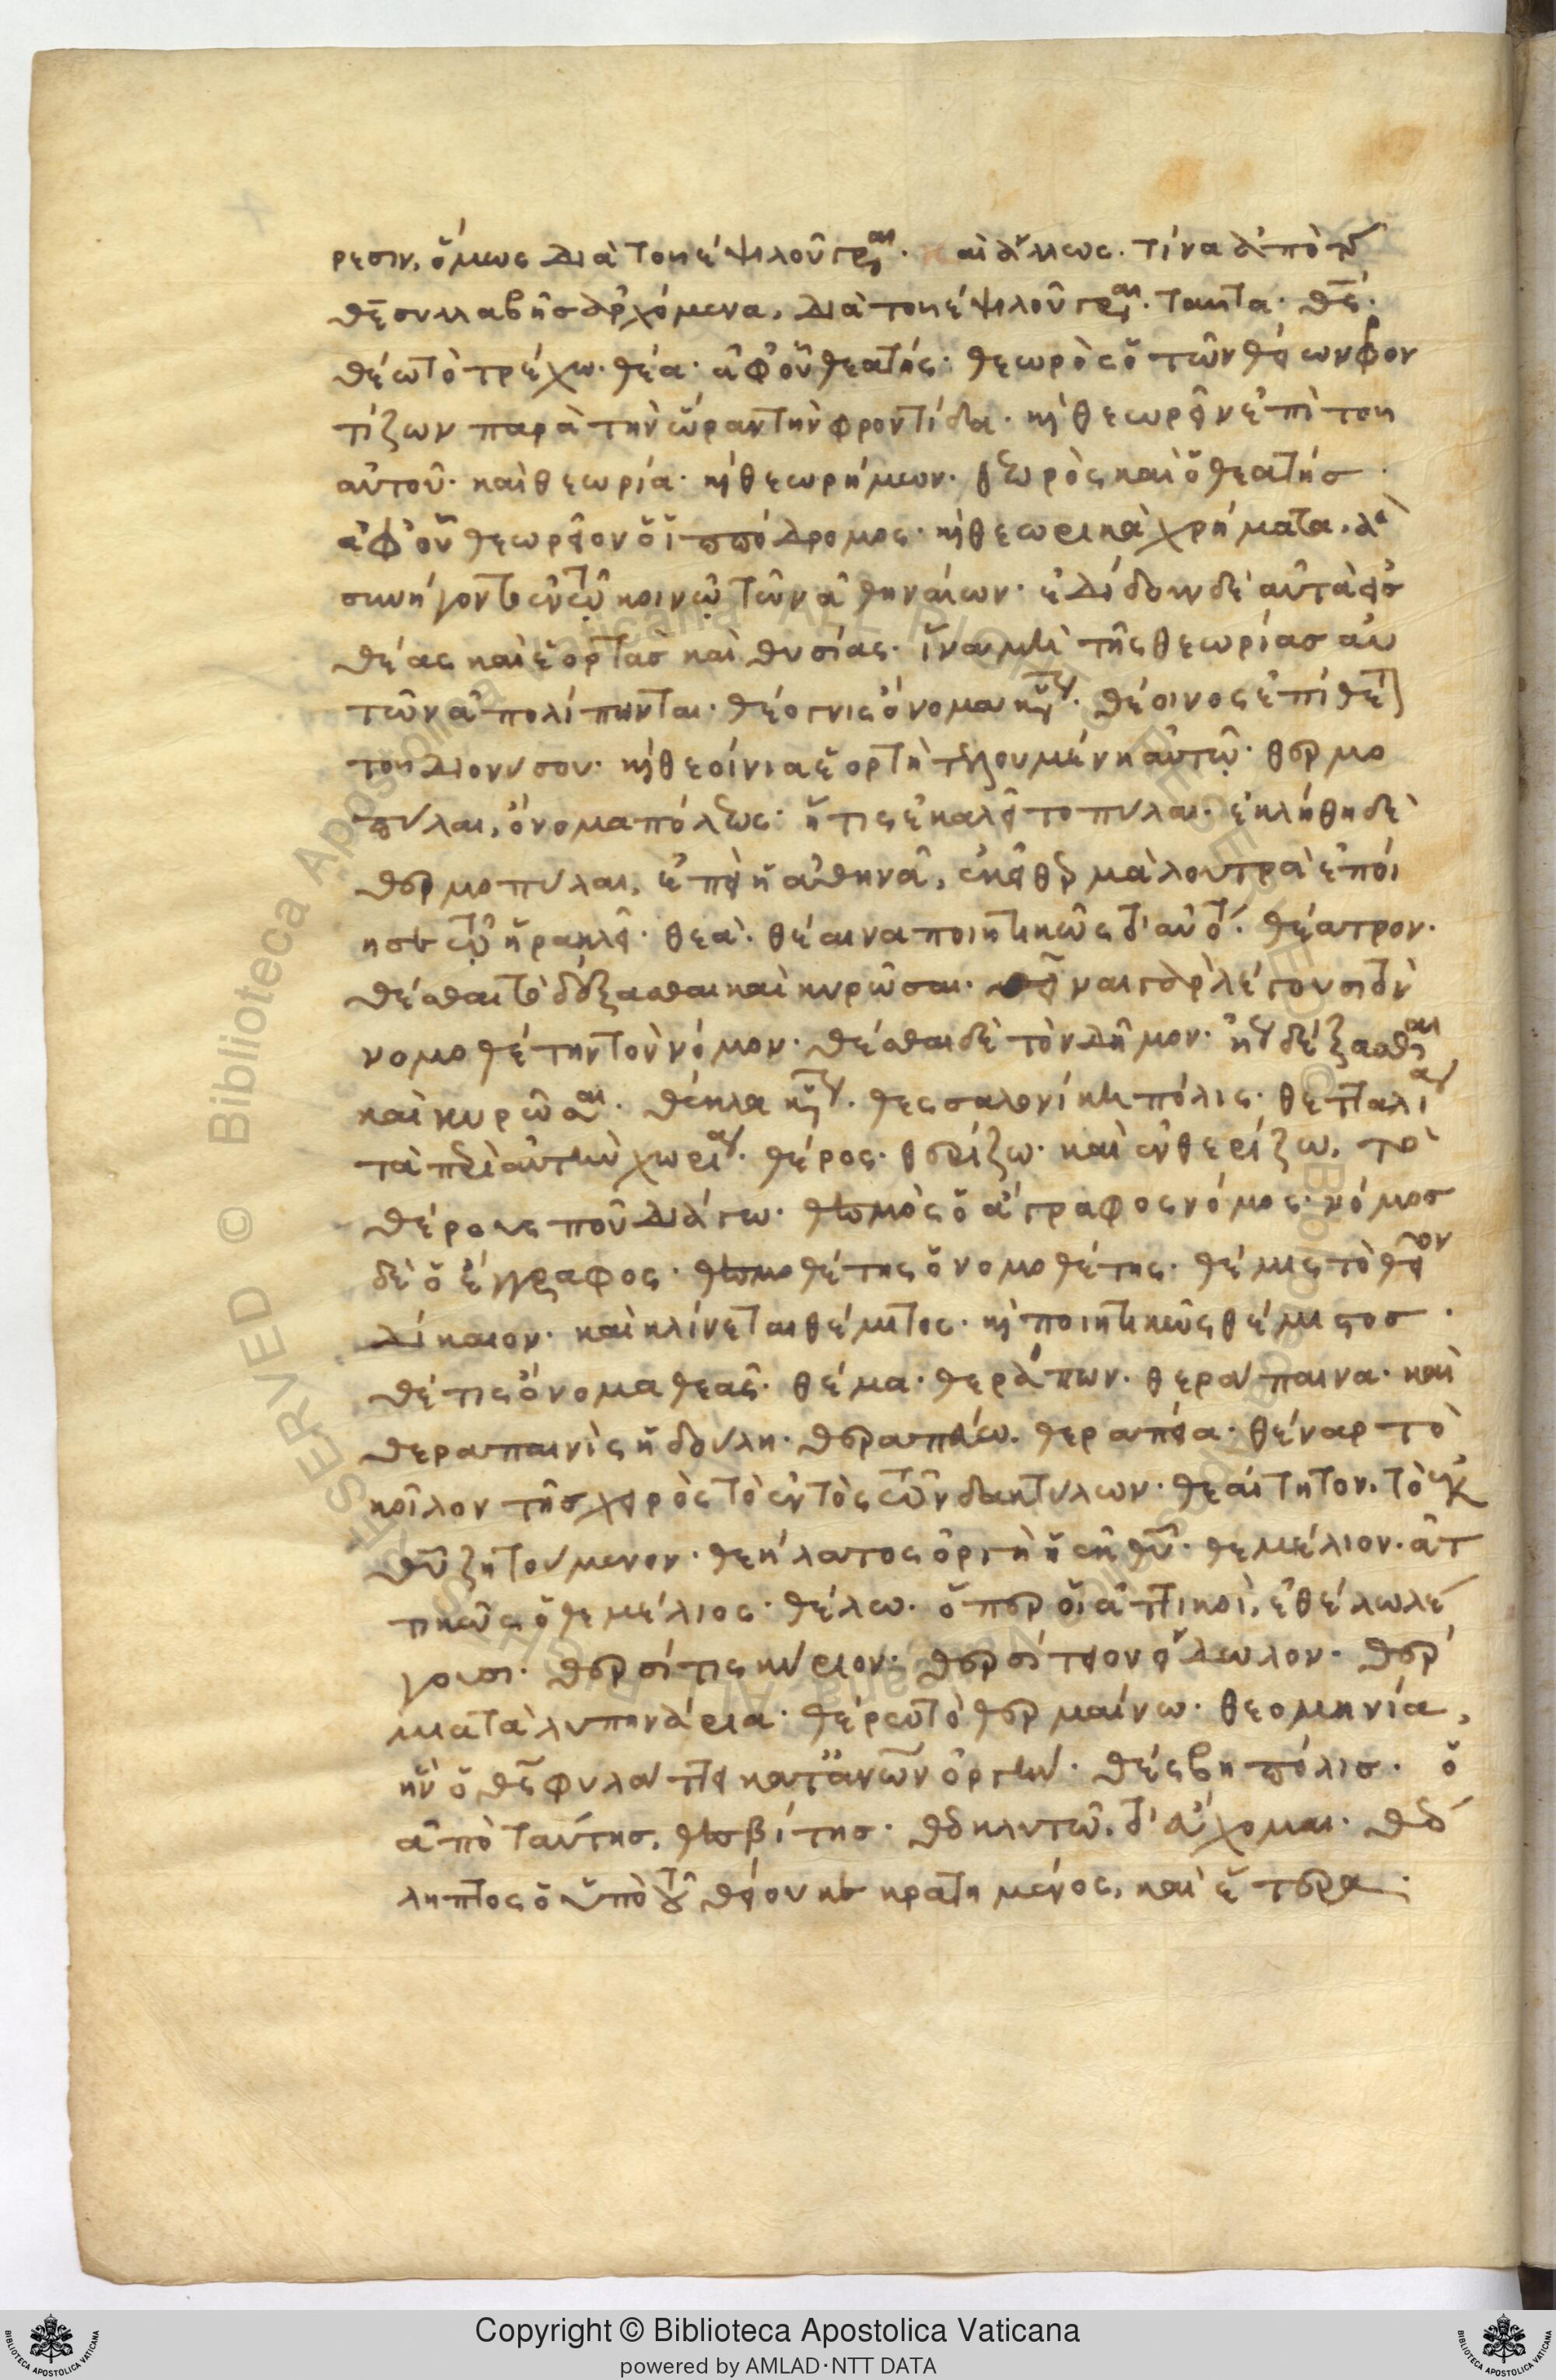 ρεσιν, ὅμως διὰ τοῦ ἐψιλοῦ γράφεται. καὶ ἄλλως. τίνα ἀπὸ τῆς
θε συλλαβῆς ἀρχόμενα, διὰ τοῦ ἐψιλοῦ γράφεται. ταῦτα. θεός.
θέω τὸ τρέχω. θέα. ἀφ' οὗ θεατής. θεωρὸς ὁ τῶν θείων φρον
τίζων παρὰ τὴν ὤραν τὴν φροντίδα. καὶ θεωρεῖν ἐπὶ τοῦ
αὐτοῦ. καὶ θεωρία. καὶ θεωρήμων. θεωρὸς καὶ ὁ θεατής.
ἀφ' οὗ θεωρεῖον ὁ ἱππόδρομος. καὶ θεωρικὰ χρήματα. ἃ
συνήγοντο ἐν τῷ κοινῷ τῶν ἀθηναίων. ἐδίδουν δὲ αὐτὰ εἰς
θέας καὶ ἑορτὰς καὶ θυσίας. ἵνα μὴ τῆς θεωρίας αὐ
τῶν ἀπολίπωνται. θέογνις ὄνομα κύριον. θέοινος ἐπίθετον
τοῦ διονύσου. καὶ θεοίνια ἑορτὴ τελουμένη αὐτῷ. θερμο
πύλαι, ὄνομα πόλεως. ἥτις ἐκαλεῖτο πύλαι. ἐκλήθη δὲ
θερμοπύλαι, ἐπεὶ ἡ ἀθηνᾶ, ἐκεῖ θερμὰ λουτρὰ ἐποί
ησε τῷ ἡρακλεῖ. θεά. θέαινα ποιητικῶς τὸ αὐτό. θέατρον.
θέσθαι τὸ δόξασθαι καὶ κυρῶσαι. θεῖναι γὰρ λέγουσι τὸν
νομοθέτην τὸν νόμον. θέσθαι δὲ τὸν δῆμον. ἤγουν δέξασθαι
καὶ κυρῶσαι. θέκλα κύριον. θεσσαλονίκη πόλις. θετταλία
τὰ περὶ αὐτὴν χωρία. θέρος. θερίζω. καὶ ἐνθερίζω. τὸ
θέρους που διάγω. θεσμὸς ὁ ἄγραφος νόμος. νόμος
δὲ ὁ ἔγγραφος. θεσμοθέτης ὁ νομοθέτης. θέμις τὸ θεῖον
δίκαιον. καὶ κλίνεται θέμιτος. καὶ ποιητικῶς θέμιστος.
θέτις ὄνομα θεᾶς. θέμα. θεράπων. θεράπαινα. καὶ
θεραπαινὶς ἡ δούλη. θεραπεύω. θεραπεία. θέναρ τὸ
κοῖλον τῆς χειρὸς τὸ ἐντὸς τῶν δακτύλων. θεαίτητον. τὸ ἐκ
θεοῦ ζητούμενον. θεήλατος ὀργὴ ἡ ἐκ θεοῦ. θεμέλιον. ἀτ
τικῶς ὁ θεμέλιος. θέλω. ὅπερ οἱ ἀττικοὶ, ἐθέλω λέ
γουσι. θερσίτης κύριον. θερσίτειον εἴδωλον. θέρ
μα τὰ λυπηνάρια. θέρω τὸ θερμαίνω. θεομηνία,
ἣν ὁ θεὸς φυλάττει κατὰ ἀνθρώπων ὀργήν. θέσβη πόλις. ὁ
ἀπὸ ταύτης, θεσβίτης. θεοκλυτῶ. τὸ εὔχομαι. θεό
ληπτος ὁ ὑπὸ τοῦ θείου κεκρατημένος, καὶ ἕτερα.
Copyright © Biblioteca Apostolica Vaticana
powered by AMLAD·NTT DATA